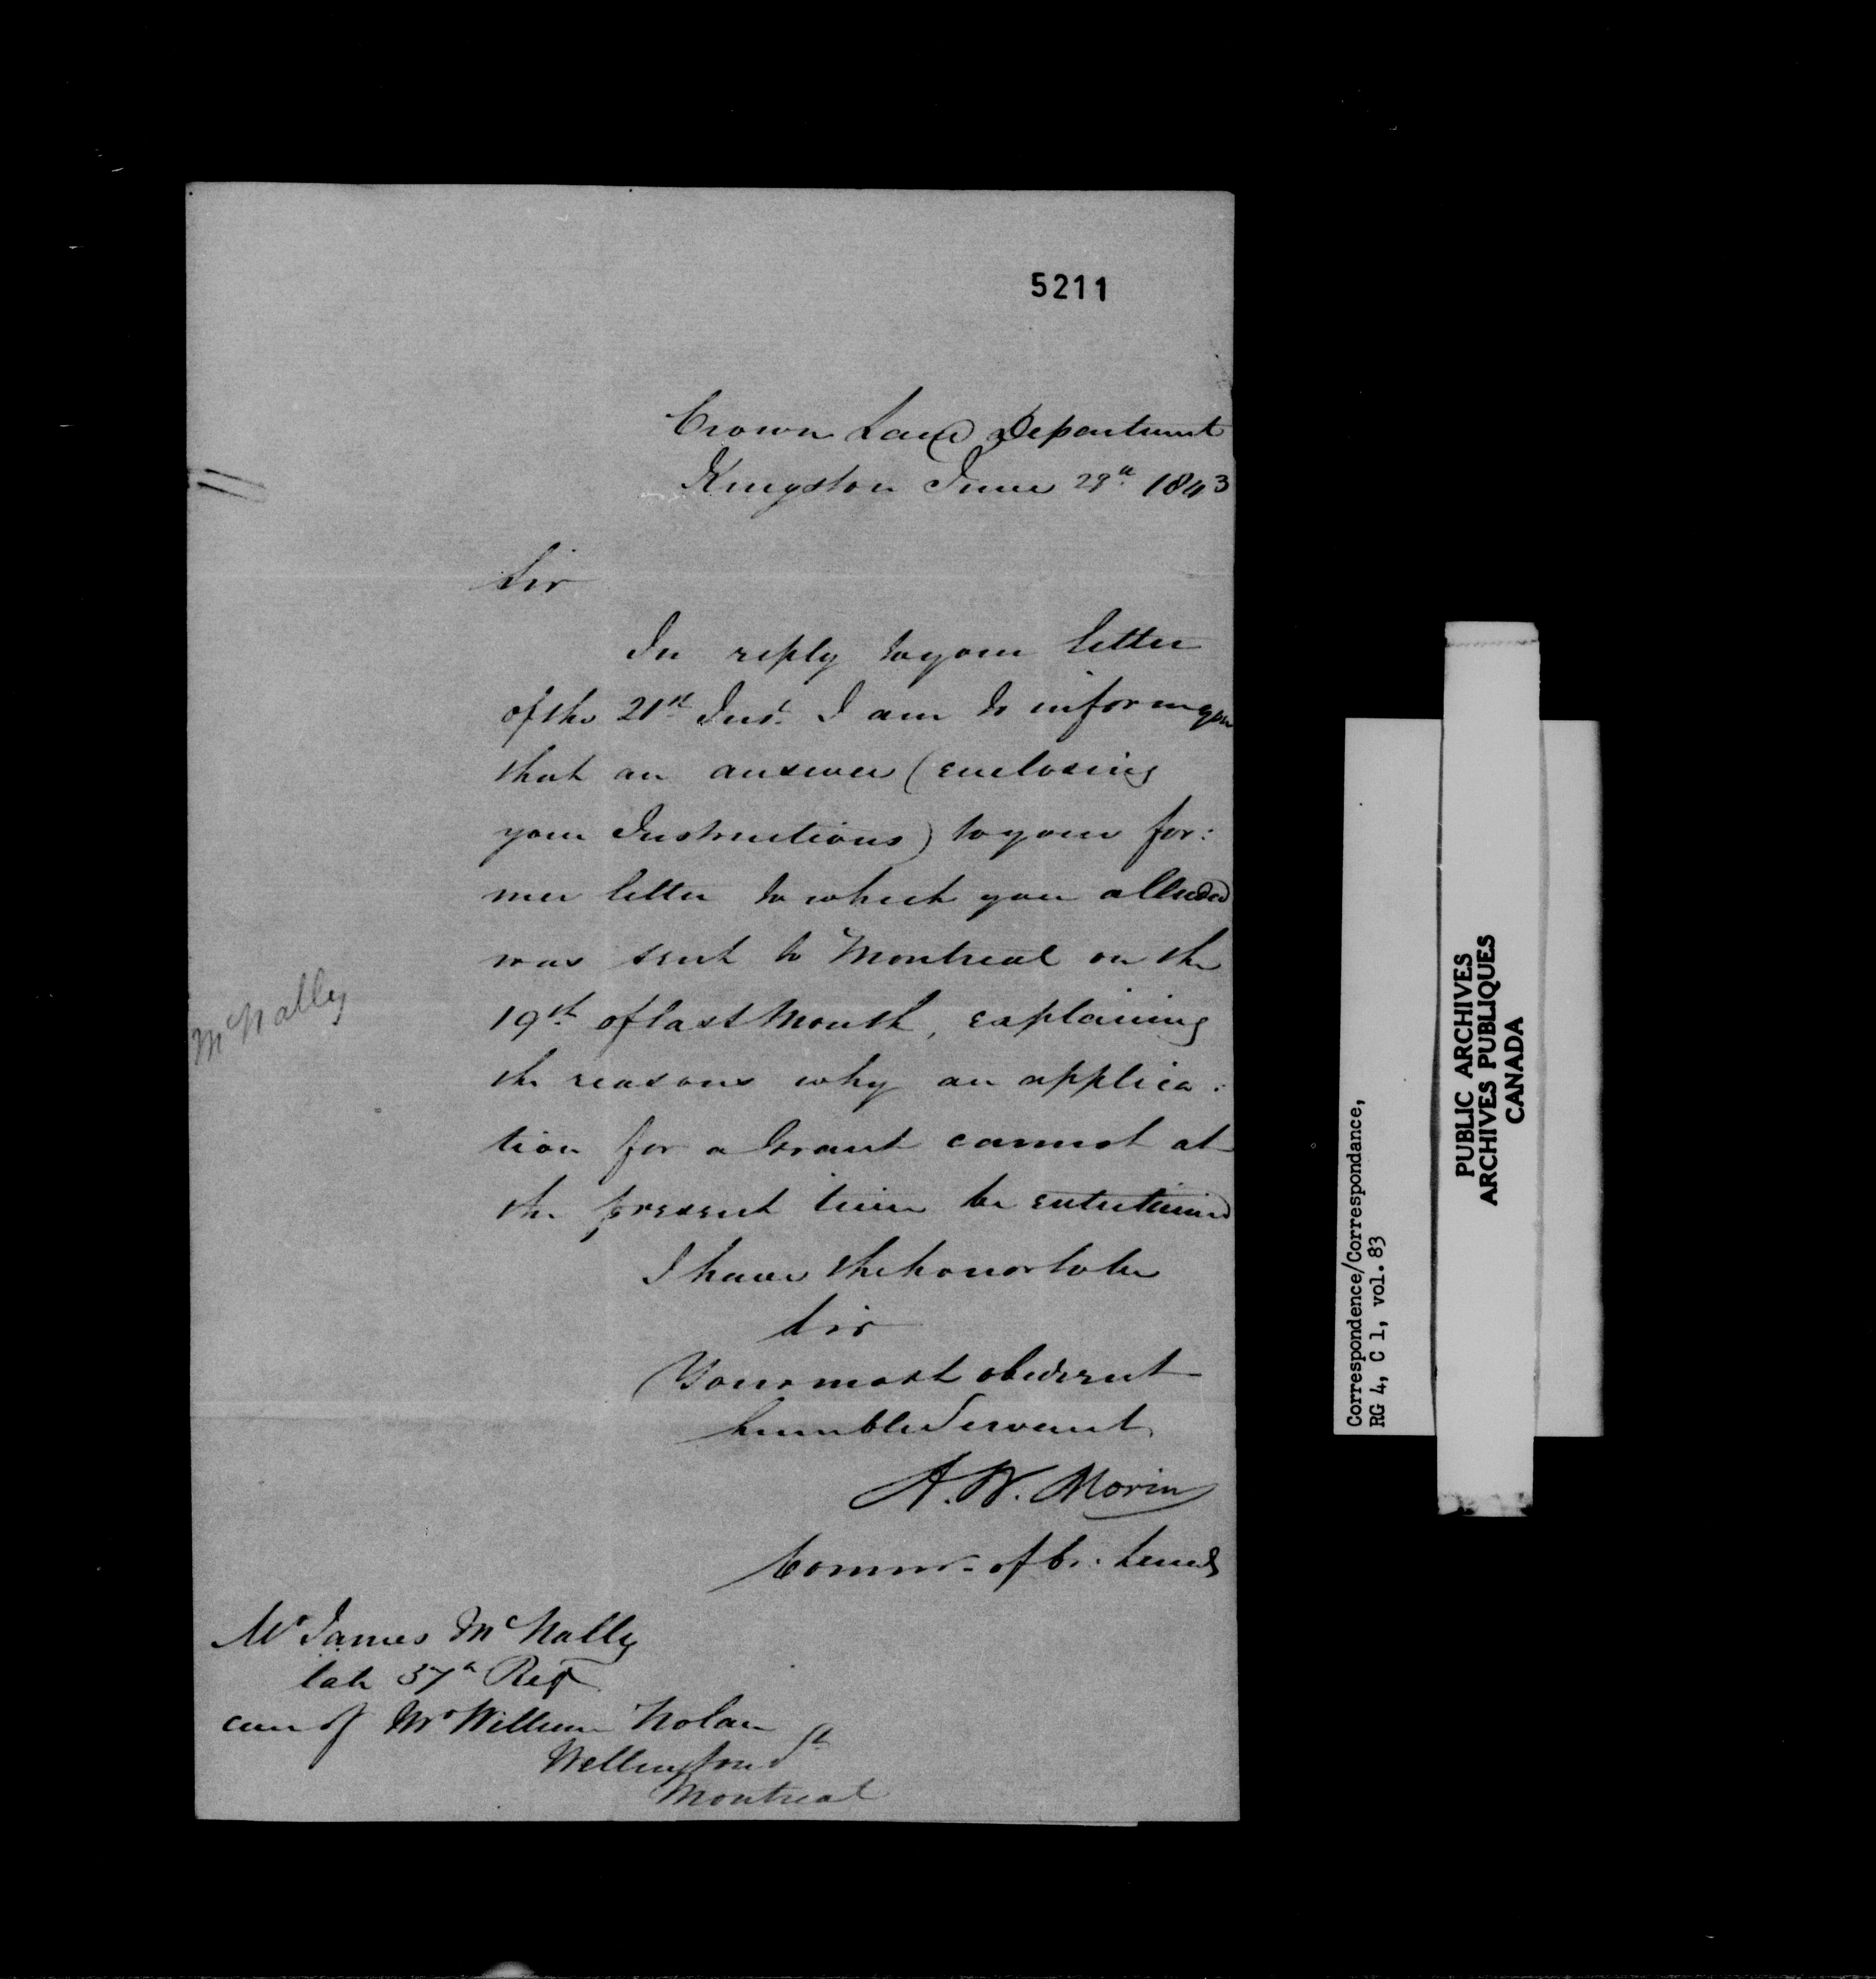 5211
Crown Land Department
Kingston June 29th 1843
Sir
In reply to your letter
of the 21st Inst. I am to inform you
that an answer (enclosing
your Instructions) to your for:
mer letter to which you alluded
was sent to Montreal on the
19th of last Month, explaining
the reasons why an applica:
tion for a Grant cannot at
the present time be entertained
I have the honor to be
Sir
Your most obedient
humble Servant
A. N. Morin
Commr. of Cr. Lands
McNally
Mr James McNally
late 37th Regt
care of Mr William Nolan
Wellington St
Montreal
Correspondence/Correspondance,
RG 4, C 1, vol. 83
PUBLIC ARCHIVES
ARCHIVES PUBLIQUES
CANADA